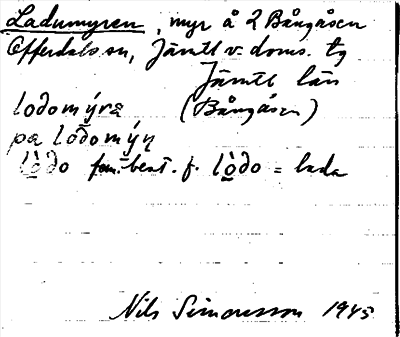 Ladumyren, myr å 2 Bångåsen
Offerdals sn, Jämtl v. doms. tg
Jämtl län
lodomýra (Bångåsen)
pa lodomýn
lòdo best. f. lòdo = lada
Nils Simonsson 1945